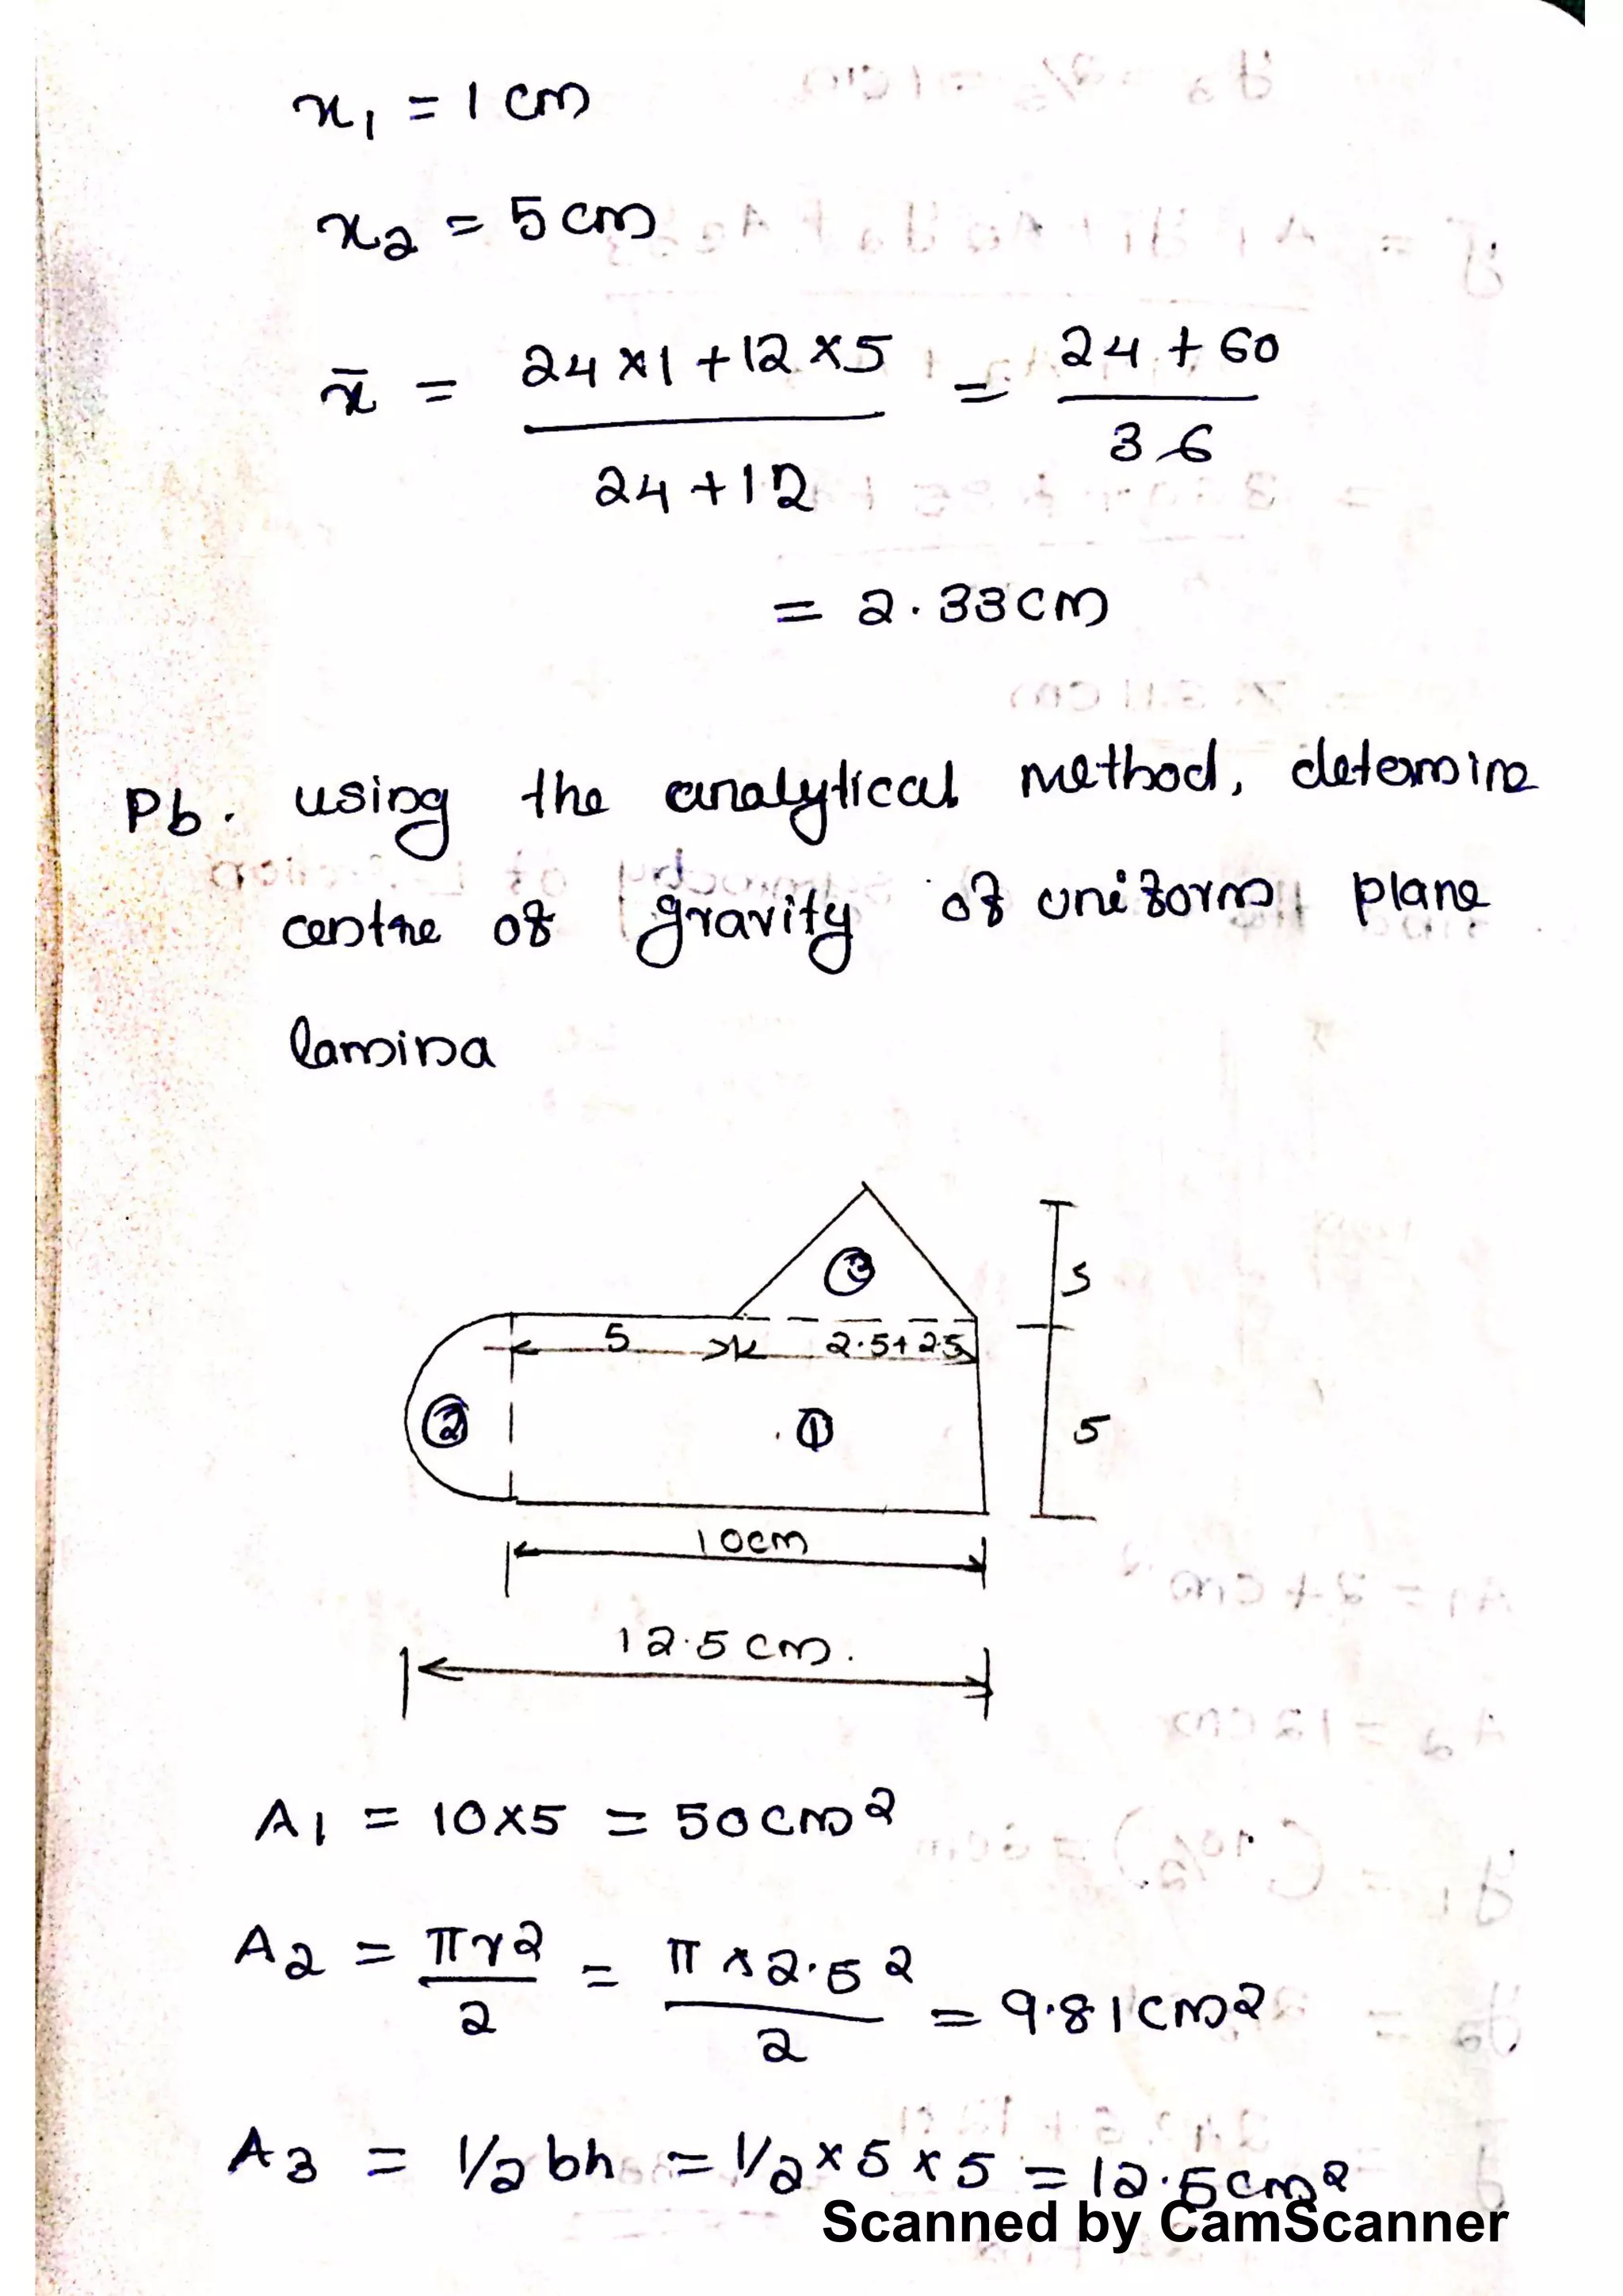 x₁ = 1 cm
x₂ = 5 cm
x̄ = (24×1 + 12×5)/(24+12) = (24 + 60)/36
= 2.33cm
Pb. using the analytical method, determine
centre of gravity of uniform plane
lamina
③
5
5
2.5+2.5
②
①
5
10cm
12.5 cm.
A₁ = 10×5 = 50cm²
A₂ = πr²/2 = π×2.5²/2 = 9.81cm²
A₃ = 1/2 bh = 1/2×5×5 = 12.5cm²
Scanned by CamScanner